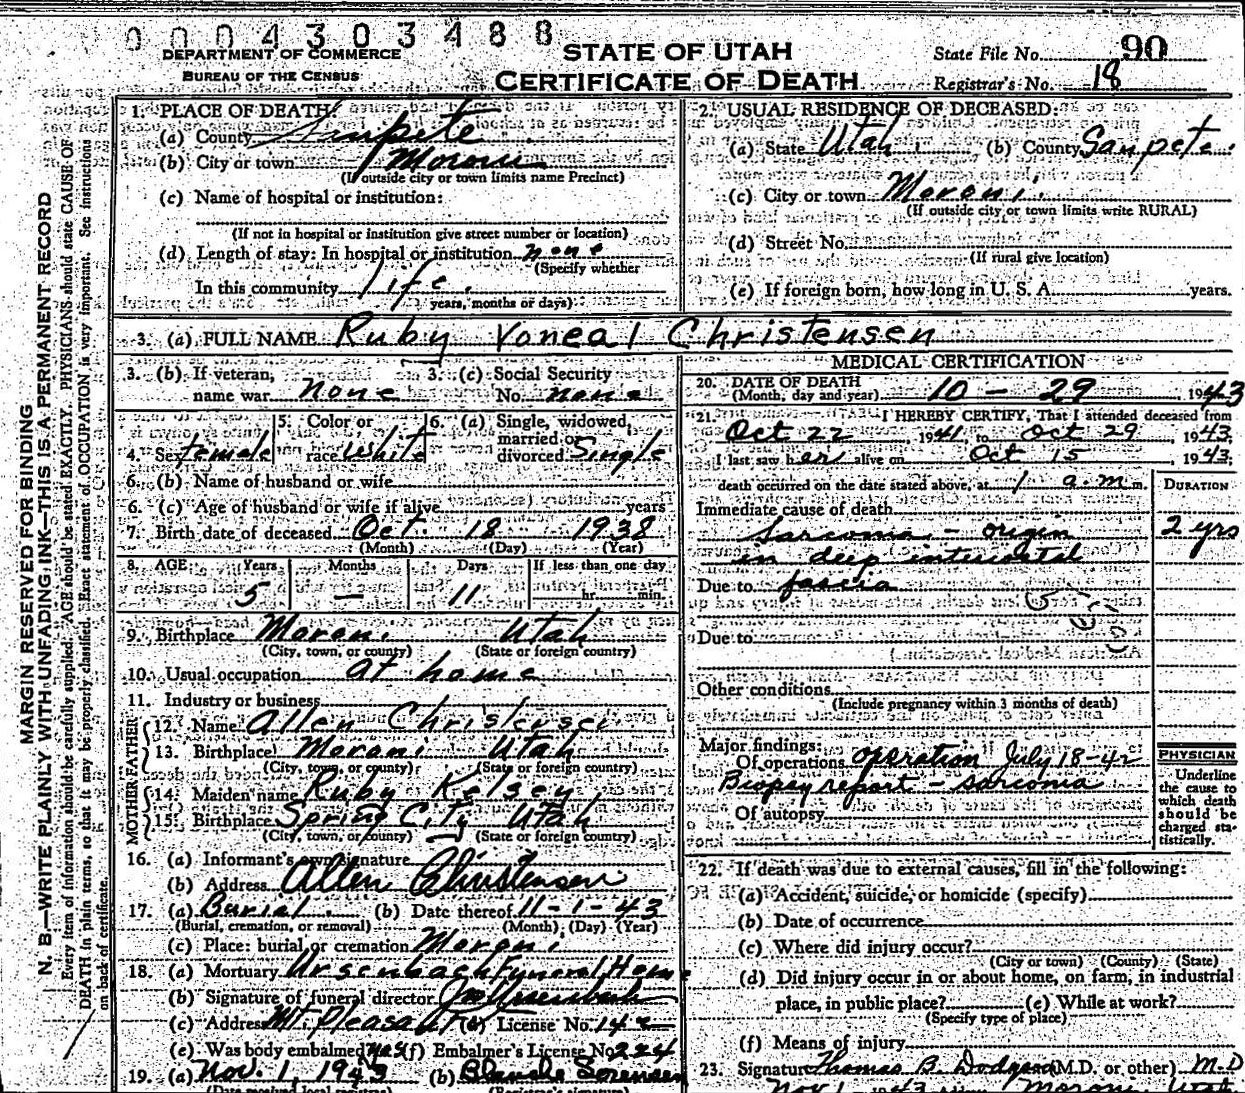 0 0 0 4 3 0 3 4 8 8
DEPARTMENT OF COMMERCE
BUREAU OF THE CENSUS
STATE OF UTAH
CERTIFICATE OF DEATH
State File No. 90
Registrar's No. 18
MARGIN RESERVED FOR BINDING
N. B.—WRITE PLAINLY WITH UNFADING INK—THIS IS A PERMANENT RECORD
Every item of information should be carefully supplied. AGE should be stated EXACTLY. PHYSICIANS should state CAUSE OF
DEATH in plain terms, so that it may be properly classified. Exact statement of OCCUPATION is very important. See instructions
on back of certificate.
1. PLACE OF DEATH
(a) County Sanpete
(b) City or town Moroni
(If outside city or town limits name Precinct)
(c) Name of hospital or institution:
(If not in hospital or institution give street number or location)
(d) Length of stay: In hospital or institution none
(Specify whether
In this community life.
years, months or days)
2. USUAL RESIDENCE OF DECEASED:
(a) State Utah (b) County Sanpete
(c) City or town Moroni
(If outside city or town limits write RURAL)
(d) Street No.
(If rural give location)
(e) If foreign born, how long in U. S. A. years.
3. (a) FULL NAME Ruby Voneal Christensen
3. (b) If veteran, name war none
3. (c) Social Security No. none
4. Sex female
5. Color or race White
6. (a) Single, widowed, married or divorced Single
6. (b) Name of husband or wife
6. (c) Age of husband or wife if alive years
7. Birth date of deceased Oct. 18 1938
(Month) (Day) (Year)
8. AGE Years Months Days If less than one day
5 — 11 hr. min.
9. Birthplace Moroni Utah
(City, town, or county) (State or foreign country)
10. Usual occupation at home
11. Industry or business
FATHER
12. Name Allen Christensen
13. Birthplace Moroni Utah
(City, town, or county) (State or foreign country)
MOTHER
14. Maiden name Ruby Kelsey
15. Birthplace Spring City Utah
(City, town, or county) (State or foreign country)
16. (a) Informant's own signature
(b) Address Allen Christensen
17. (a) Burial. (b) Date thereof 11-1-43
(Burial, cremation, or removal) (Month) (Day) (Year)
(c) Place: burial or cremation Moroni
18. (a) Mortuary Ursenbach Funeral Home
(b) Signature of funeral director Ursenbach
(c) Address Mt. Pleasant (d) License No.
(e) Was body embalmed yes (f) Embalmer's License No. 224
19. (a) Nov. 1, 1943 (b) Blanche Sorensen
(Date received local registrar) (Registrar's signature)
MEDICAL CERTIFICATION
20. DATE OF DEATH
(Month, day and year) 10 - 29 1943
21. I HEREBY CERTIFY, That I attended deceased from
Oct 22, 1941, to Oct 29 1943,
I last saw her alive on Oct 15, 1943,
death occurred on the date stated above, at 1 a.m. m.
DURATION
Immediate cause of death
Sarcoma - origin 2 yrs
in deep intercostal
Due to fascia
Due to
Other conditions
(Include pregnancy within 3 months of death)
Major findings:
Of operations operation July 18-42
Biopsy report - sarcoma
Of autopsy
PHYSICIAN
Underline
the cause to
which death
should be
charged sta-
tistically.
22. If death was due to external causes, fill in the following:
(a) Accident, suicide, or homicide (specify)
(b) Date of occurrence
(c) Where did injury occur?
(City or town) (County) (State)
(d) Did injury occur in or about home, on farm, in industrial
place, in public place? (e) While at work?
(Specify type of place)
(f) Means of injury
23. Signature Thomas B. Dodgson (M.D. or other) M.D
Nov 1 1943 Moroni Utah